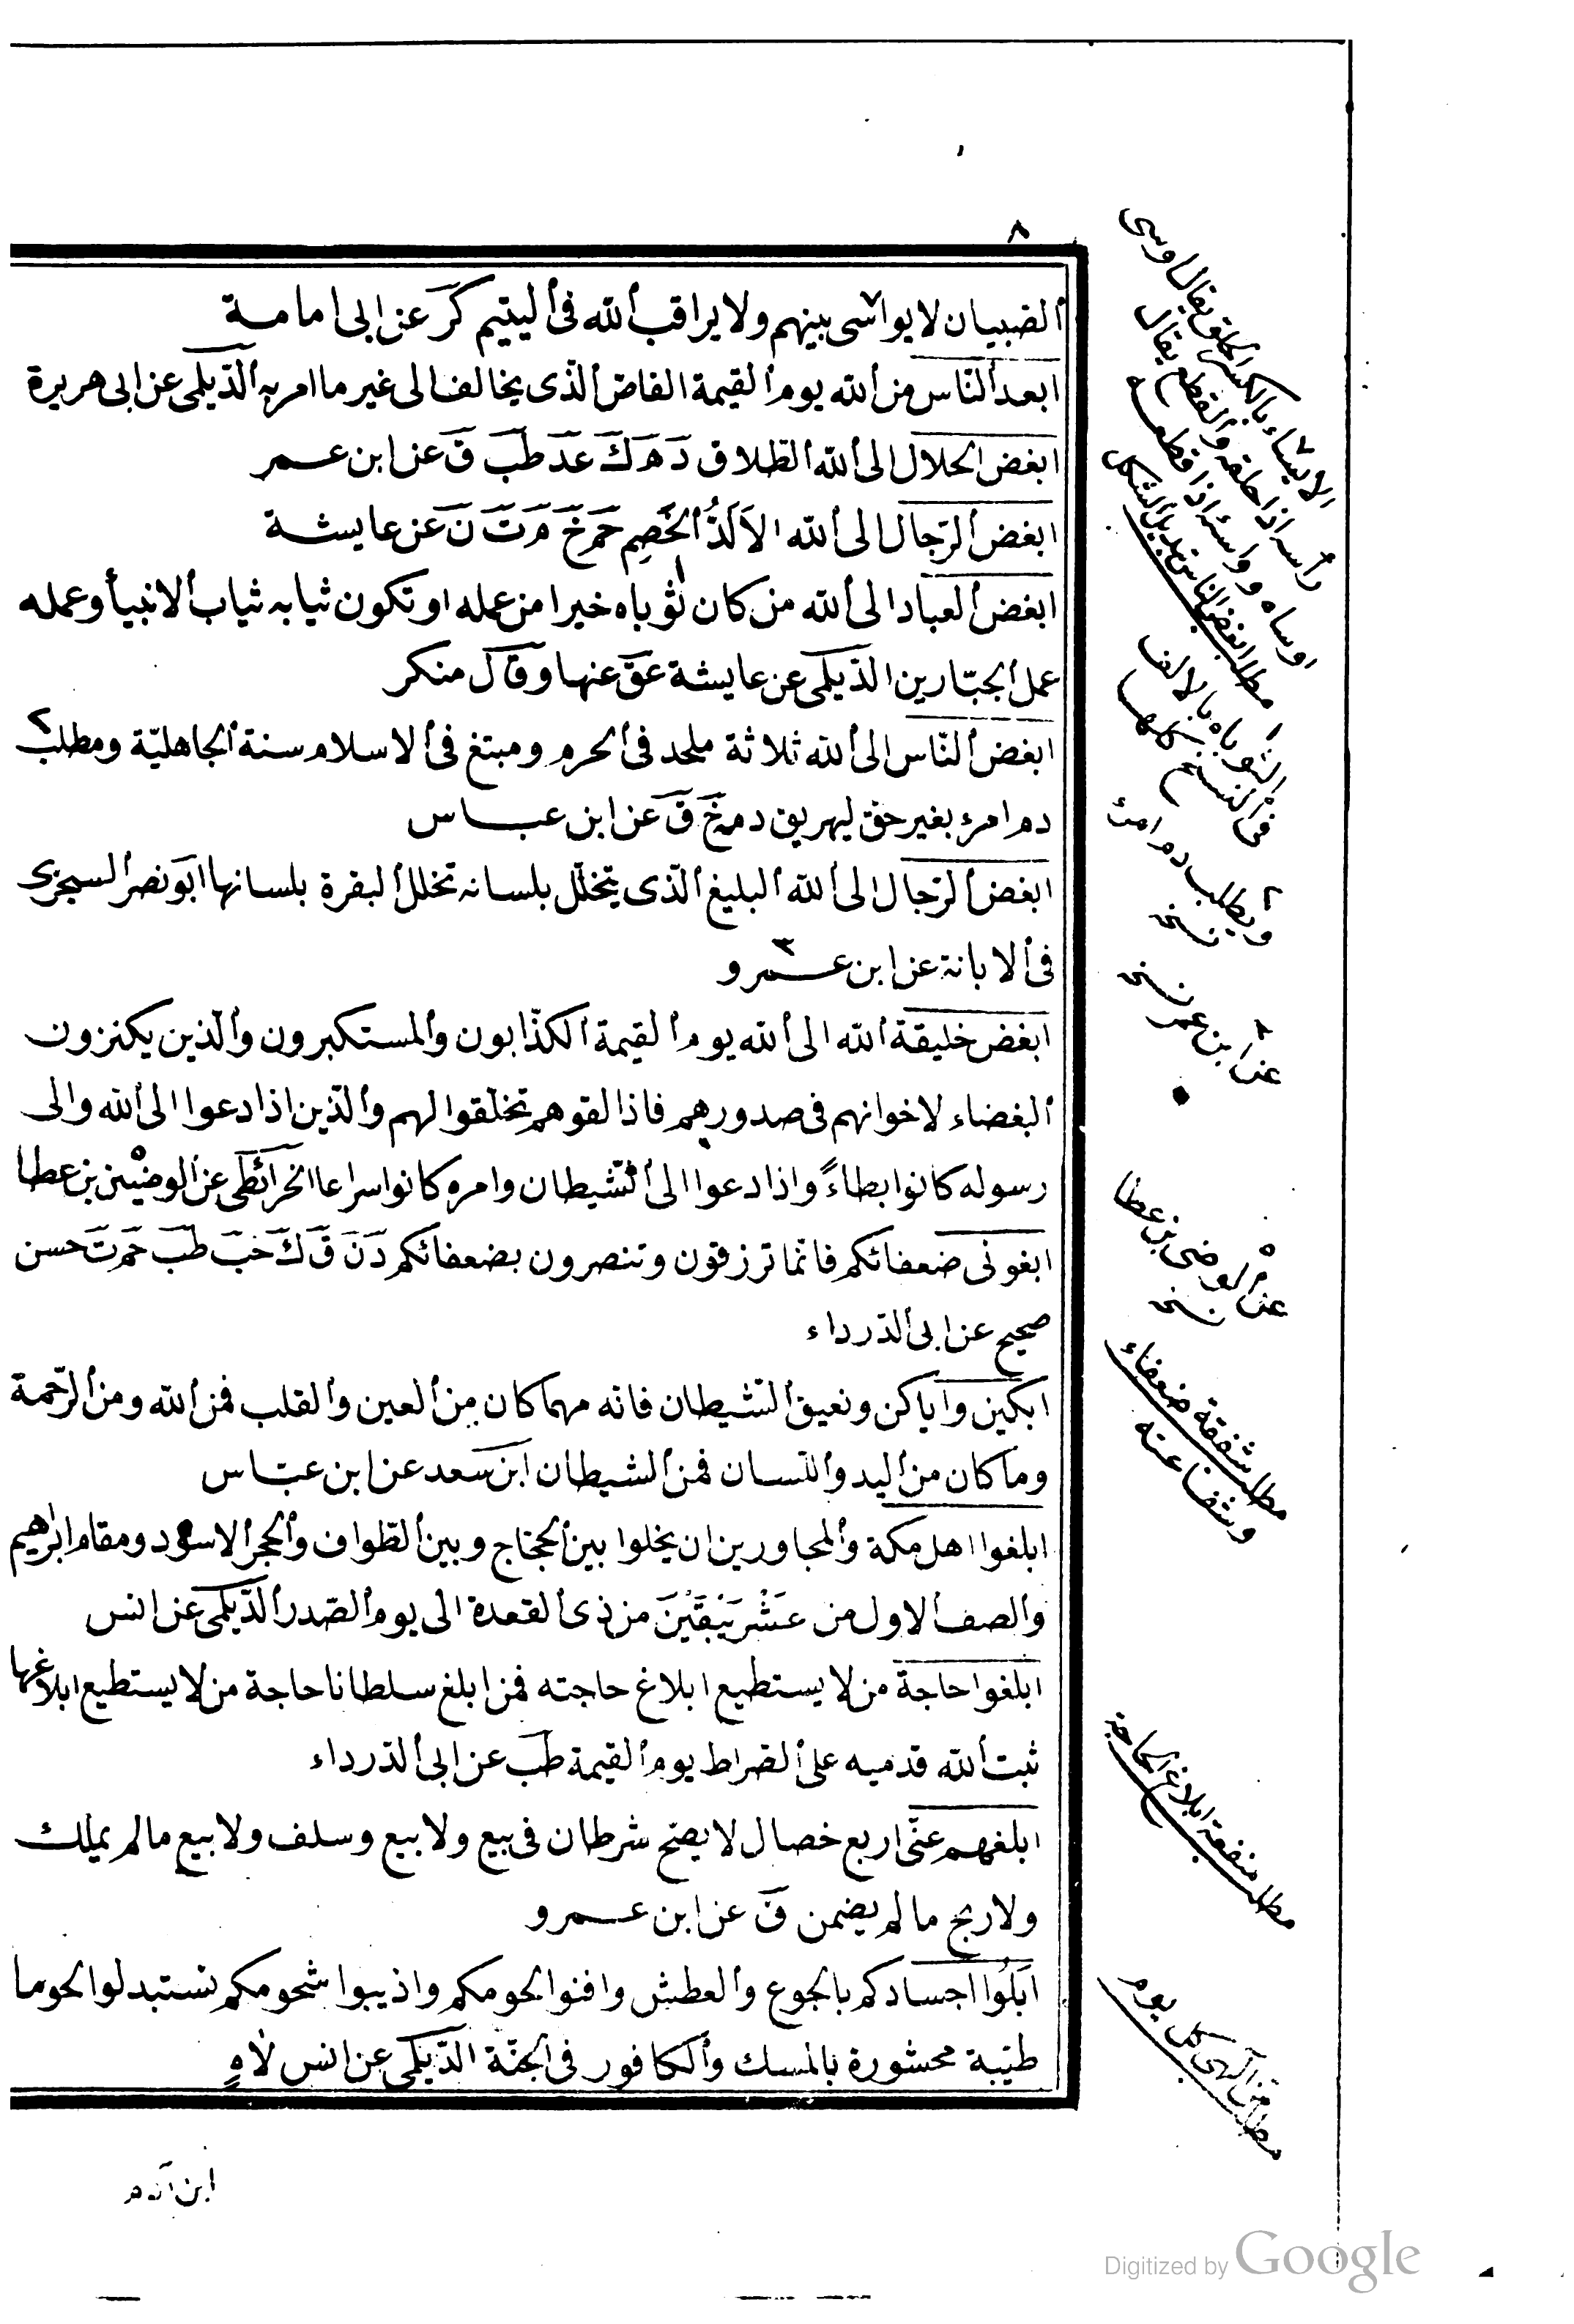 ٨
الصبيان لا يواسى بينهم ولا يراقب الله فى اليتيم كر عن ابى امامة
ابعد الناس من الله يوم القيمة القاص الذى يخالف الى غير ما امر به الديلمى عن ابى هريرة
ابغض الحلال الى الله الطلاق د ه ك عد طب ق عن ابن عمر
ابغض الرجال الى الله الاَلَدُّ الخَصِم حم خ م ت ن عن عايشة
ابغض العباد الى الله من كان ثوباه خيرا من عمله او تكون ثيابه ثياب الانبيأ وعمله
عمل الجبّارين الدّيلمى عن عايشة عق عنها وقال منكر
ابغض النّاس الى الله ثلاثة ملحد فى الحرم ومبتغ فى الاسلام سنة الجاهليّة ومطلب
دم امرء بغير حق ليهريق دمه خ ق عن ابن عباس
ابغض الرّجال الى الله البليغ الّذى يتخلّل بلسانه تخلل البقرة بلسانها ابو نصر السجزى
فى الابانة عن ابن عمرو
ابغض خليقة الله الى الله يوم القيمة الكذّابون والمستكبرون والّذين يكنزون
البغضاء لاخوانهم فى صدورهم فاذا لقوهم تخلّقوا لهم والّذين اذا دعوا الى الله والى
رسوله كانوا بطاءً واذا دعوا الى الشّيطان وامره كانوا سراعا الخرائطى عن الوضين بن عطا
ابغونى ضعفائكم فانّما ترزقون وتنصرون بضعفائكم د ن ق ك حب طب حم ت حسن
صحيح عن ابى الدّرداء
ابكين واياكن ونعيق الشّيطان فانه مهما كان من العين والقلب فمن الله ومن الرّحمة
وما كان من اليد واللّسان فمن الشيطان ابن سعد عن ابن عبّاس
ابلغوا اهل مكة والمجاورين ان يخلوا بين الحجّاج وبين الطّواف والحجر الاسود ومقام ابرهيم
والصف الاول من عَشْر يَبْقَيْنَ من ذى القعدة الى يوم الصّدر الدّيلمى عن انس
ابلغوا حاجة من لا يستطيع ابلاغ حاجته فمن ابلغ سلطانا حاجة من لا يستطيع ابلاغها
ثبت الله قدميه على الصّراط يوم القيمة طب عن ابى الدّرداء
ابلغهم عنّى اربع خصال لا يصح شرطان فى بيع ولا بيع وسلف ولا بيع ما لم يملك
ولا ربح ما لم يضمن ق عن ابن عمرو
ابلُوا اجسادكم بالجوع والعطش وافنوا لحومكم واذيبوا شحومكم تستبدلوا لحوما
طيّبة محشورة بالمسك والكافور فى الجنّة الدّيلمى عن انس لاهٍ
ابن آدم
رأسه اذا حلقه والقطع يقال
اوساه وواسئ اذا قطعه
مطلب ابغض الناس
١ الثوباه بالالف
فى النسخ كلها
٢ ويطلب دم امرئ
نسخه
عن ابن عمر نسخه
٥ عن الوضى بن عطا
نسخه
مطلب شفقة ضعفاء
وشفاعته
مطلب منفعة ابلاغ الحاجة
Digitized by Google